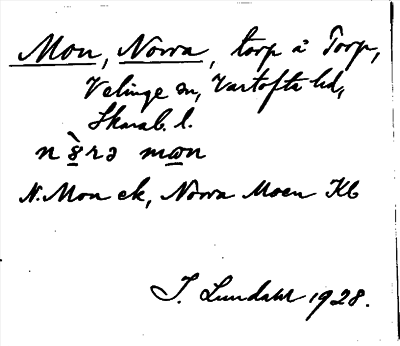 Mon, Norra, torp å Torp,
Velinge sn, Vartofta hd,
Skarab. l.
n ò̤rə mɷn
N. Mon ek, Norra Moen Kb
I. Lundahl 1928.